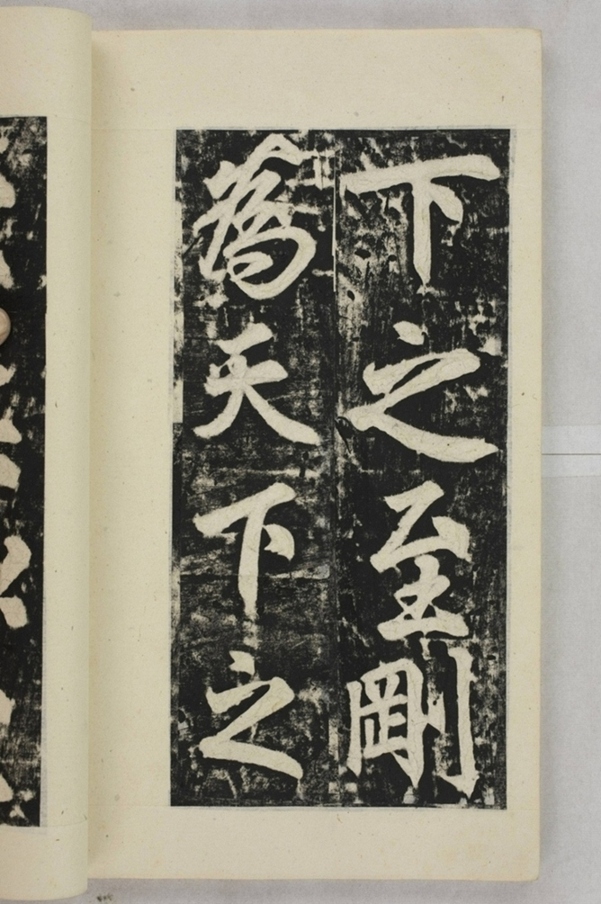 下之至剛
為天下之